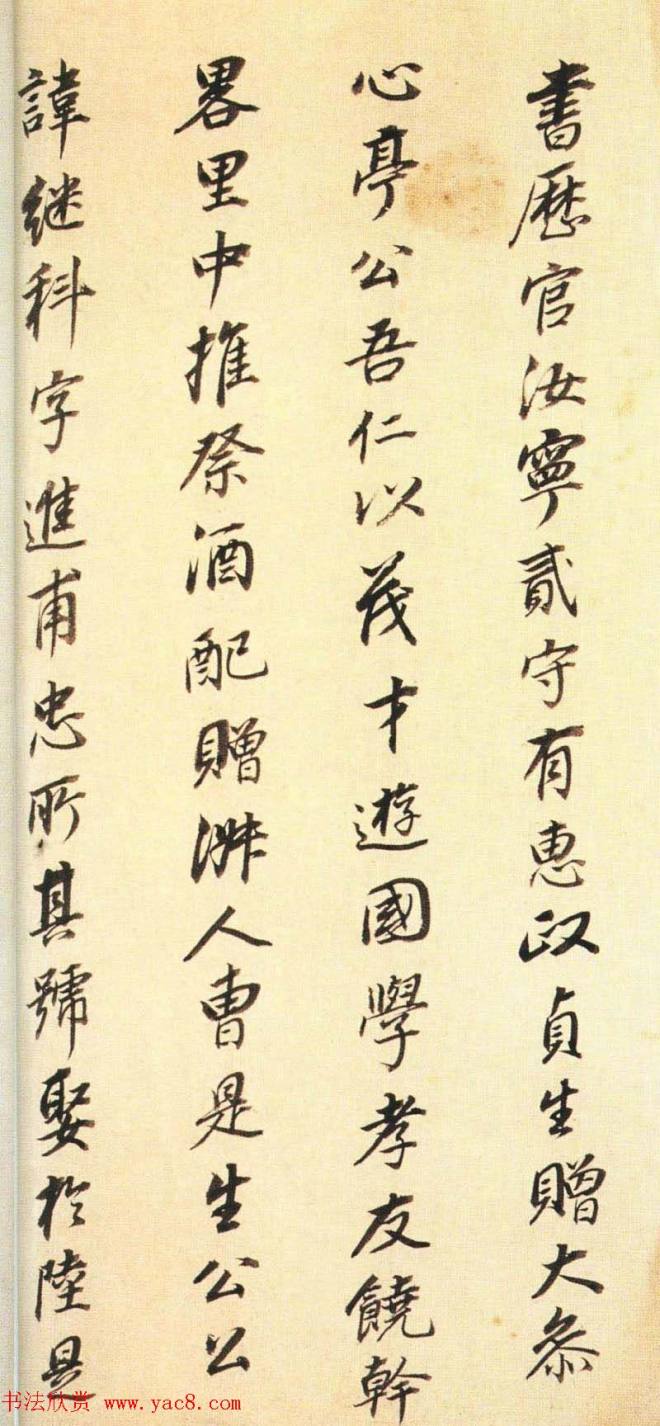 書歷官汝寧貳守有惠政貞生贈大參
心亭公吾仁以茂才遊國學孝友饒幹
畧里中推祭酒配贈淋人曹是生公公
諱继科字進甫忠所其號娶於陸是
书法欣赏 www.yac8.com